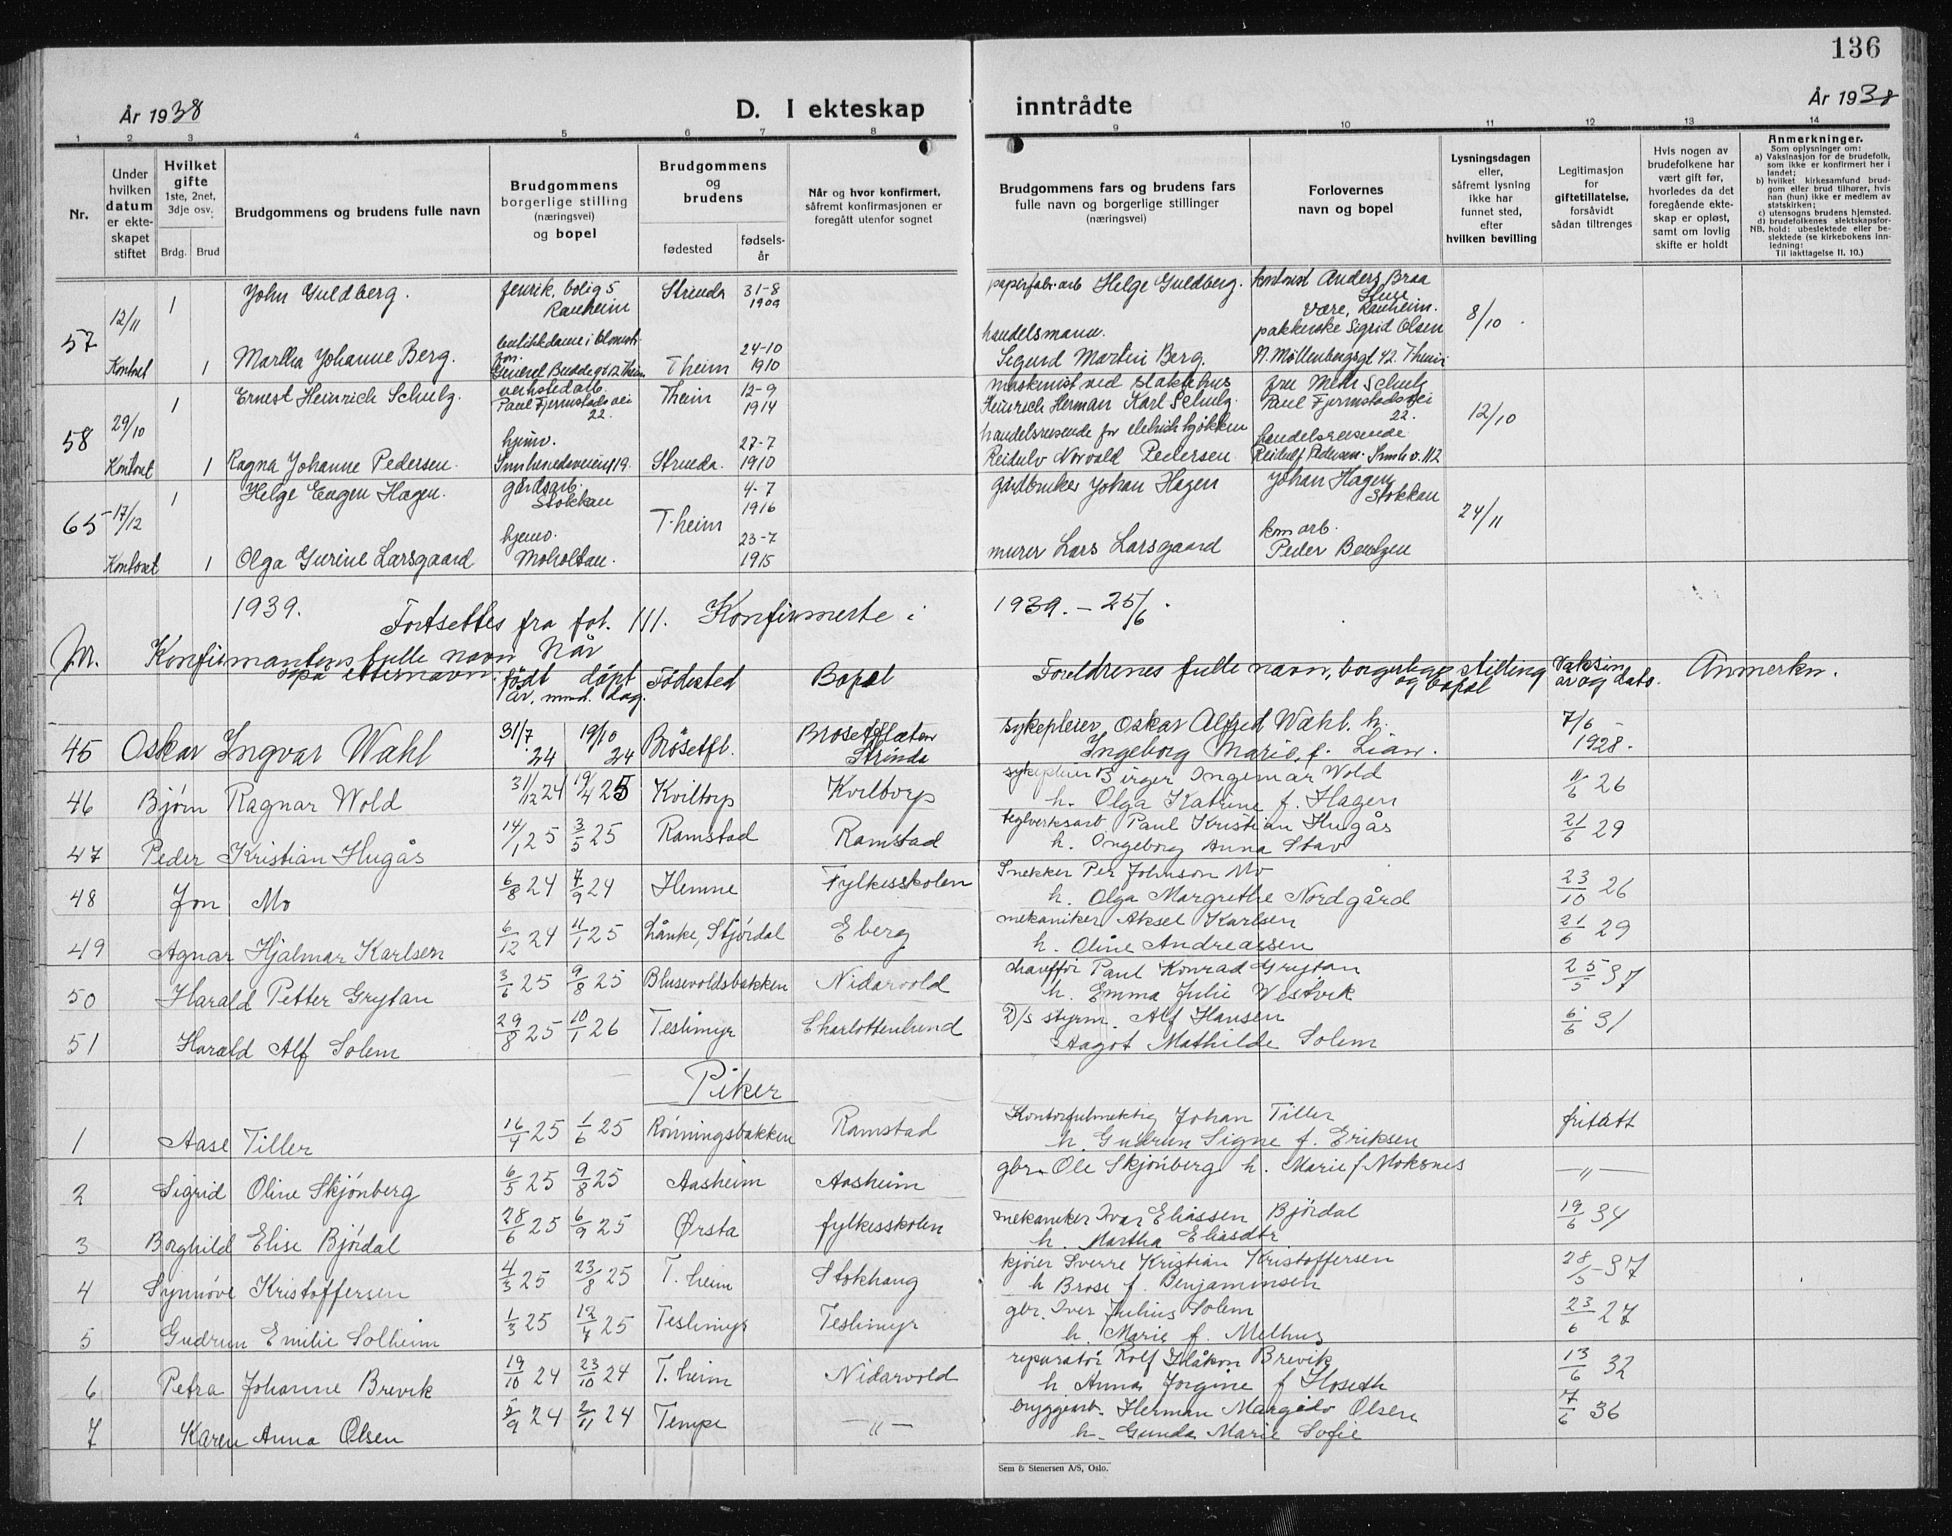 136
År 1938
D. I ekteskap
inntrådte
År 1938
1 2 3 4 5 6 7 8 9 10 11 12 13 14
Nr.
Under hvilken datum er ekte- skapet stiftet
Hvilket gifte
1ste, 2net, 3dje osv.
Brdg. Brud
Brudgommens og brudens fulle navn
Brudgommens borgerlige stilling (næringsvei) og bopel
Brudgommens og brudens
fødested
fødsels- år
Når og hvor konfirmert, såfremt konfirmasjonen er foregått utenfor sognet
Brudgommens fars og brudens fars fulle navn og borgerlige stillinger (næringsvei)
Forlovernes navn og bopel
Lysningsdagen eller, såfremt lysning ikke har funnet sted, efter hvilken bevilling
Legitimasjon for giftetillatelse, forsåvidt sådan tiltrenges
Hvis nogen av brudefolkene har vært gift før, hvorledes da det foregående ekte- skap er opløst, samt om lovlig skifte er holdt
Anmerkninger.
Som oplysninger om:
a) Vaksinasjon for de brudefolk, som ikke er konfirmert her i landet;
b) hvilket kirkesamfund brud- gom eller brud tilhører, hvis han (hun) ikke er medlem av statskirken;
c) utensogns brudens hjemsted.
d) brudefolkenes slektskapsfor- hold: ubeslektede eller be- slektede (se kirkebokens inn- ledning:
NB.
Til iakttagelse II. 10.)
57 12/11 1 John Guldberg. fenrik, bolig 5 Ranheim Strinda 31-8 1909 paperfabr.arb Helge Guldberg. kontorist Anders Braa Være, Ranheim. 8/10
Kontoret 1 Martha Johanne Berg. General Buddes gt 12 Theim T heim 24-10 1910 handelsmann. Sigurd Martin Berg. Sigrid Olsen Møllenbergsgt 42. Theim
58 29/10 1 Ernest Heinrich Schulz. verkstedarb. Paul Fjermstads vei 22. Theim 12-9 1914 maskinist ved slaktehus Heinrich Herman Karl Schulz. fru Schulz Paul Fjermstads vei 22. 12/10
Kontoret 1 Ragna Johanne Pedersen. hjemv. Innherredsveien 119. Strinda. 27-7 1910 handelsreisende for Reidulv Norvald Pedersen handelsreisende Reidulf Pedersen. Innh.v. 112
65 17/12 1 Helge Eugen Hagen. gårdsarb. Stokkan T.heim 4-7 1916 gårdbruker Johan Hagen Johan Hagen Stokkan 24/11
Kontoret 1 Olga Gurine Larsgaard hjemv. Moholtan. 23-7 1915 murer Lars Larsgaard kom arb. Peder Bentzen
1939. Fortsettes fra fol. 111. Konfirmerte i 1939. - 25/6.
Nr. Konfirmantens fulle navn også etternavn. Når født døpt år, mnd. dag. Fødested Bopel Foreldrenes fulle navn, borgerlige stilling og bopel Vaksin. år og dato. Anmerkn.
45 Oskar Ingvar Wahl 31/7 24 19/10 24 Brøsetfl. Brosetflaten Strinda sykepleier Oskar Alfred Wahl. h. Ingeborg Marie, f. Lian. 7/6 - 1928.
46 Bjørn Ragnar Wold 31/12 24 19/4 25 Kviltorp Kviltorp sykepleier Birger Ingemar Wold h. Olga Katrine f. Hagen 11/6 26
47 Peder Kristian Hugås 14/1 25 3/5 25 Ramstad Ramstad teglverksarb Paul Kristian Hugås h. Ingeborg Anna Stav 21/6 29
48 Jon Mo 6/8 24 7/9 24 Hemne Fylkesskolen Snekker Per Johnson Mo h. Olga Margrethe Nordgård 23/10 26
49 Agnar Hjalmar Karlsen 6/12 24 11/1 25 Lånke, Stjørdal Eberg mekaniker Aksel Karlsen h. Oline Andreassen 21/6 29
50 Harald Petter Grytan 3/6 25 9/8 25 Blusevoldsbakken Nidarvold chauffør Paul Konrad Grytan h. Emma Julie Vestvik 25/5 37
51 Harald Alf Solem 29/8 25 10/1 26 Teslimyr Charlottenlund D/s styrm. Alf Hansen Aagot Mathilde Solem 6/6 31
Piker
1 Aase Tiller 16/4 25 1/6 25 Rønningsbakken Ramstad Kontorfulmektig Johan Tiller h. Gudrun Signe f. Eriksen fritatt
2 Sigrid Oline Skjønberg 6/5 25 9/8 25 Aasheim Aasheim gbr. Ole Skjønberg h. Marie f Moksnes —"—
3 Borghild Elise Bjørdal 28/6 25 6/9 25 Ørsta fylkesskolen mekaniker Ivar Eliassen Bjørdal h. Martha Eliasdtr. 19/6 34
4 Synnøve Kristoffersen 4/3 25 23/8 25 T. heim Stokhaug kjører Sverre Kristian Kristoffersen h Brose f. Benjaminsen 28/5 - 37
5 Gudrun Emilie Solheim 1/3 25 12/4 25 Teslimyr Teslimyr gbr. Iver Julius Solem h. Marie f. Melhus 23/6 27
6 Petra Johanne Brevik 19/10 24 23/10 24 T. heim Nidarvold reparatør Rolf Håkon Brevik h. Anna Jorgine f Hoseth 13/6 32
7 Karen Anna Olsen 5/9 24 2/11 24 Tempe —"— bryggearb. Herman Margido Olsen h. Gunda Marie Sofie 7/6 36
Sem & Stenersen A/S, Oslo.